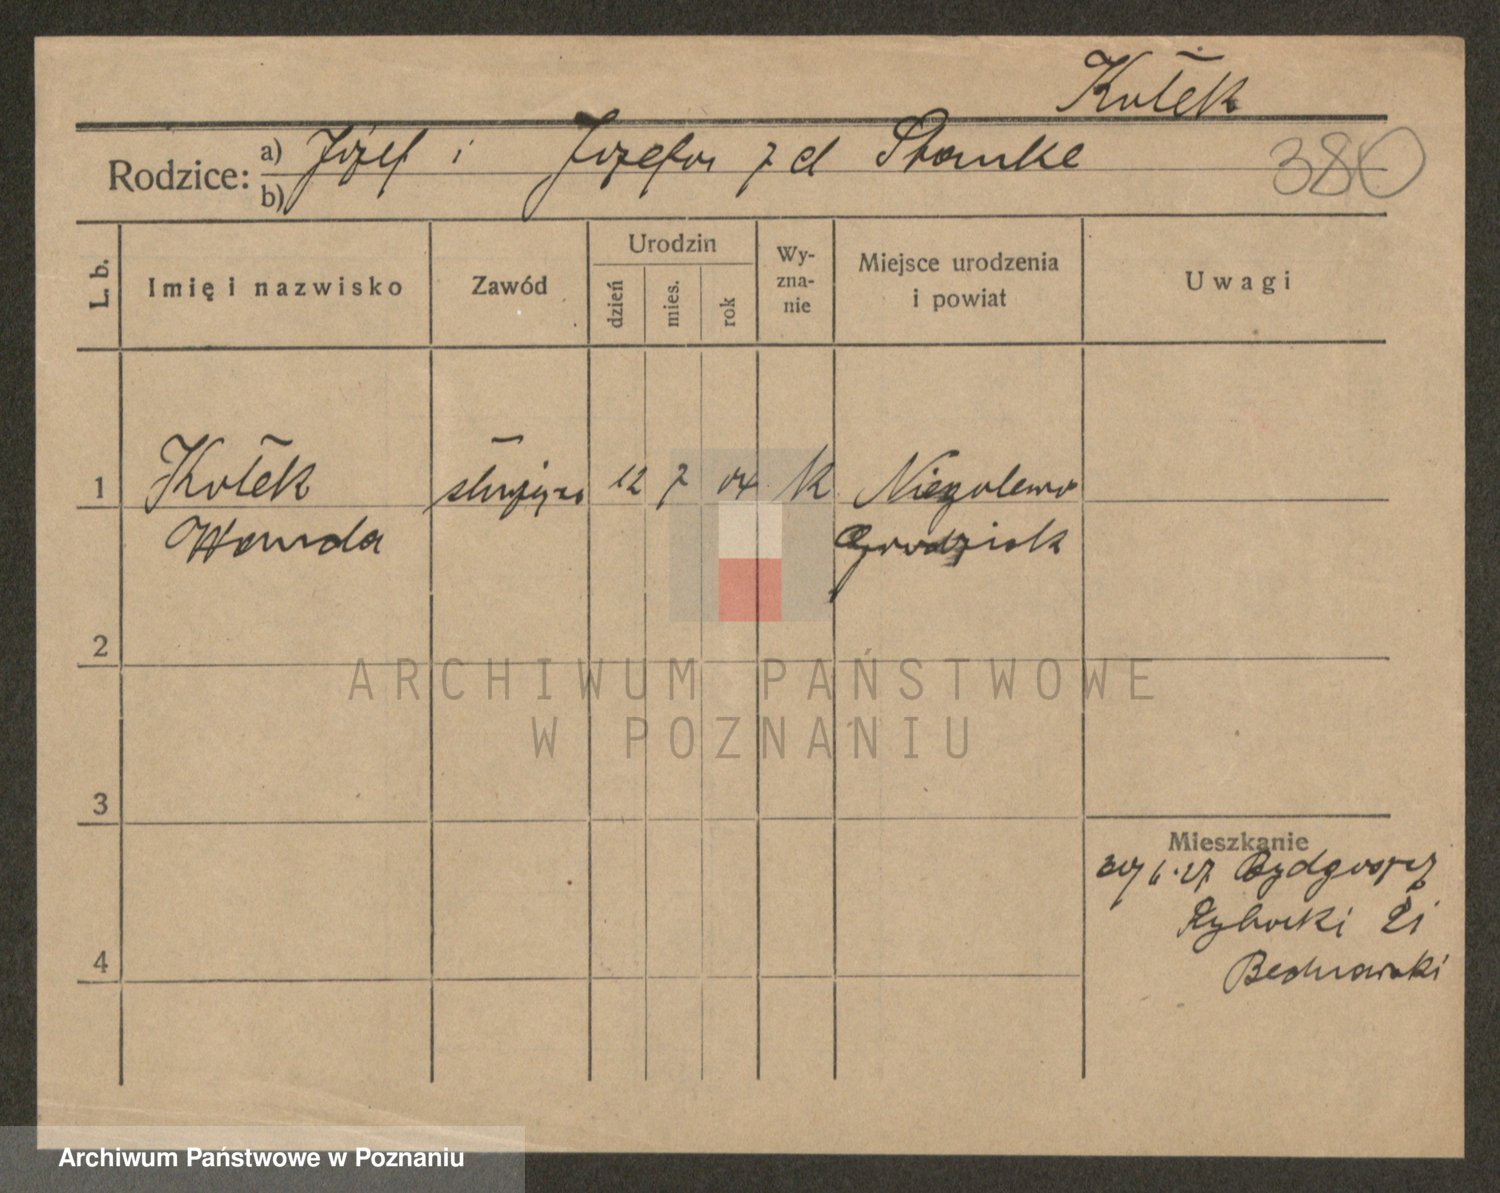 Kołek
Rodzice: a) Józef i Józefa z d Stanke
b)
380
L. b.
Imię i nazwisko
Zawód
Urodzin
dzień
mies.
rok
Wy-
zna-
nie
Miejsce urodzenia
i powiat
Uwagi
1 Kołek służąca 12 7 04 k Niegolewo
Wanda Grodzisk
2
ARCHIWUM PAŃSTWOWE
W POZNANIU
3
4
Mieszkanie
6.27. Bydgoszcz
Rybacki
Bednarski
Archiwum Państwowe w Poznaniu